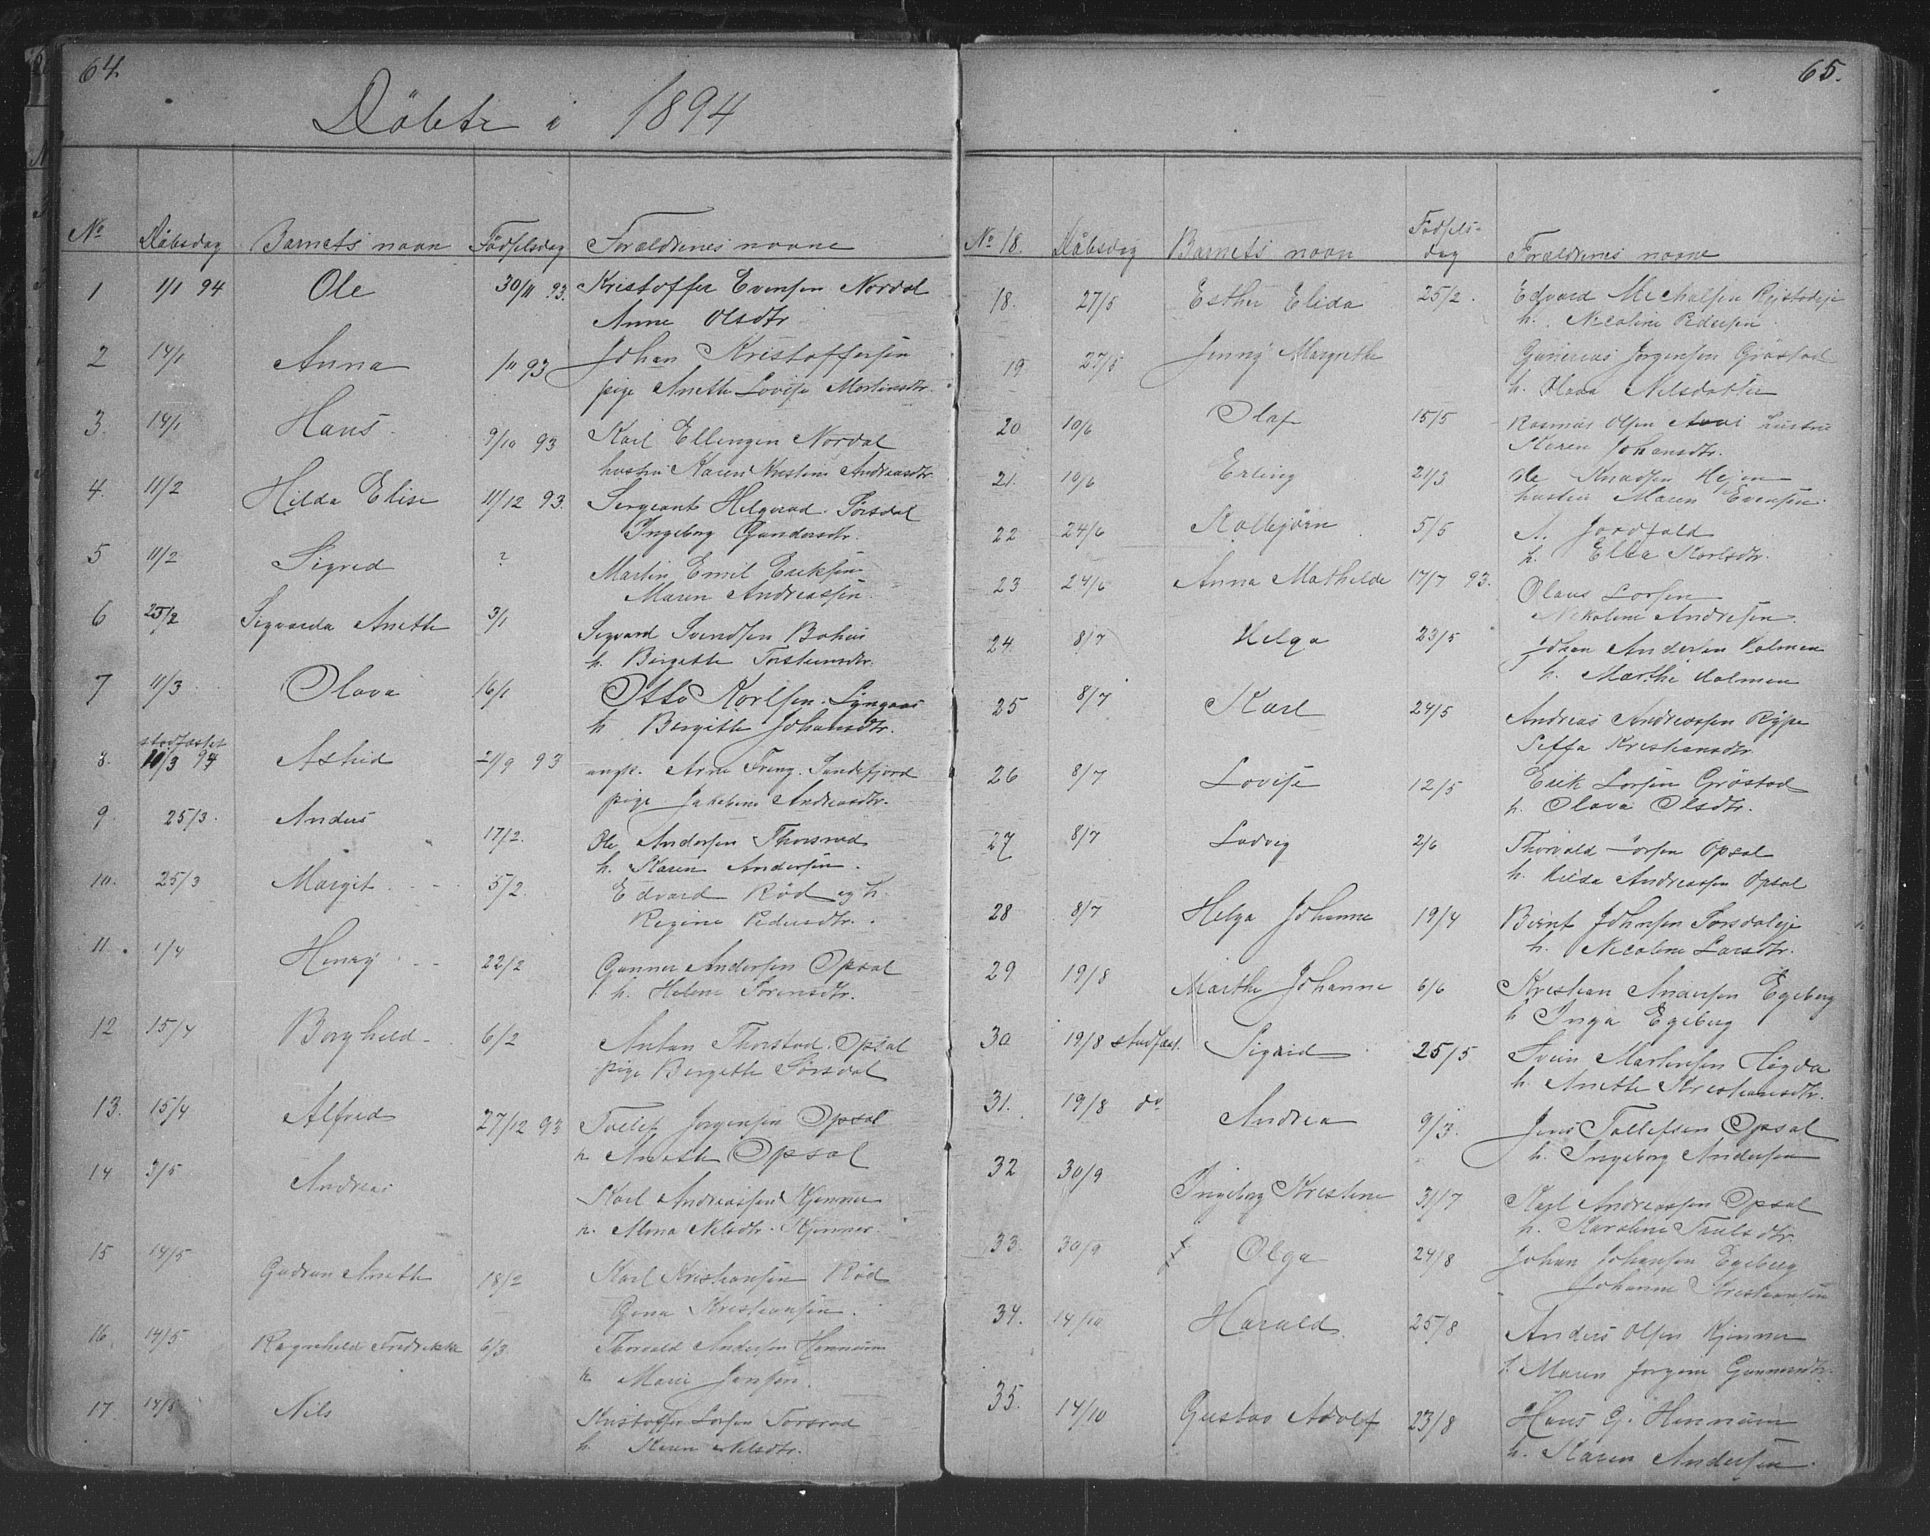 64.
Döbte i 1894
No Dåbsdag Barnets navn Födselsdag Forældrenes navne
1 1/1 94 Ole 30/11 93. Kristoffer Evensen Nordal
Anne Olsdtr.
2 14/1 Anna 1/11 93 Johan Kristoffersen
pige Anette Lovise Martinsdtr.
3. 14/1 Hans 9/10 93 Karl Ellingsen Nordal
hustru Karen Kristine Andreasdtr
4. 11/2 Hilda Elise 11/12 93. Sergeant Helgerød Torsdal
Ingeborg Gundersdtr.
5 11/2 Sigrid ? Martin Emil Eriksen
Maren Andreassen.
6 25/2 Sigvarda Anette 3/1 Sigvard Svendsen
h. Birgitte Torsteinsdtr.
7 11/3 Olava 16/1 Otto Karlsen Lyngaas
h Bergitte Johansdtr.
stadfæstet
8. 10/3 94 Astrid 21/9 93 angk. Arne Sandefjord
pige Jakobine Andreasdtr.
9 25/3 Anders 17/2. Ole Andersen
h. Karen Andersen.
10. 25/3 Margit 5/2. Edvard Röd og h.
Regine Pedersdtr.
11. 1/4 Henry 22/2 Gunner Andersen Opsal
h. Helene Sörensdtr.
12 15/4 Borghild 6/2 Anton Thorstad Opsal
pige Bergitte Sörsdal
13. 15/4 Alfred 27/12 93 Tollef Jörgensen Opsal
h Anette Opsal
14 3/5 Andreas Karl Andreassen Kjenner
h. Alma Nilsdtr. Kjenner.
15 14/5 Gudrun Anette 18/2 Karl Kristiansen Röd
Gina Kristiansen.
16. 14/5 Ragnhild Fredrikke 6/3 Thorvald Andersen Hennum
h Marie Jansen.
17. 14/5 Nils Kristoffer Larsen
h Karen Nilsdtr.
65.
No 18. Dåbsdag Barnets navn Födsels-
dag Forældrenes navne
18. 27/5 Esther Elida 25/2. Edvard Michalsen
h. Nicoline Pedersen
19 27/5 Jenny Margrethe Jörgensen Gröstad
h. Olava Nilsdatter
20 10/6 Olaf 15/5 Rasmus Olsen
Karen Johansdtr.
21. 10/6 Erling 21/3 Ole Knudsen
hustru Maren Evensen.
22 24/6 Kolbjörn 5/5 A. Jordfald
h. Ella Karlsdtr.
23 24/6 Anna Mathilde 17/7 93. Olaus Larsen
Nikoline Andresen.
24. 8/7 Helga 23/5 Johan Andersen Holmen
h. Marthe Holmen
25 8/7 Karl 24/5 Andreas Andreassen Rype
Kristiansdtr.
26 8/7 Lovise 12/5 Erik Larsen Gröstad
h. Olava Olsdtr.
27 8/7 Ludvig 2/6 Thorvald Larsen Opsal
h. Andreassen Opsal
28 8/7 Helga Johanne 19/4 Bernt Johnsen Torsdaleje
h. Nicoline Larsdtr.
29 19/8 Marthe Johanne 6/6 Kristian Andersen Egeberg
h Inga Egeberg
30 19/8 stadfæst. Sigrid 25/5 Svein Martinsen Högda
h. Anette Kristiansdtr.
31. 19/8 do Andrea 9/3. Jens Tollefsen Opsal
h. Ingeborg Andersen
32 30/9 Ingeborg Kristine 31/7 Karl Andreassen Opsal
h. Karoline
33. 30/9 Olga 24/8 Johan Johansen Egeberg
Johanne Kristiansen
34. 14/10 Harald. 25/8 Anders Olsen Kjenner
h. Maren Jörgine
35. 14/10 Gustav Adolf 23/8 Hans G. Hennum
h. Karen Andersen.